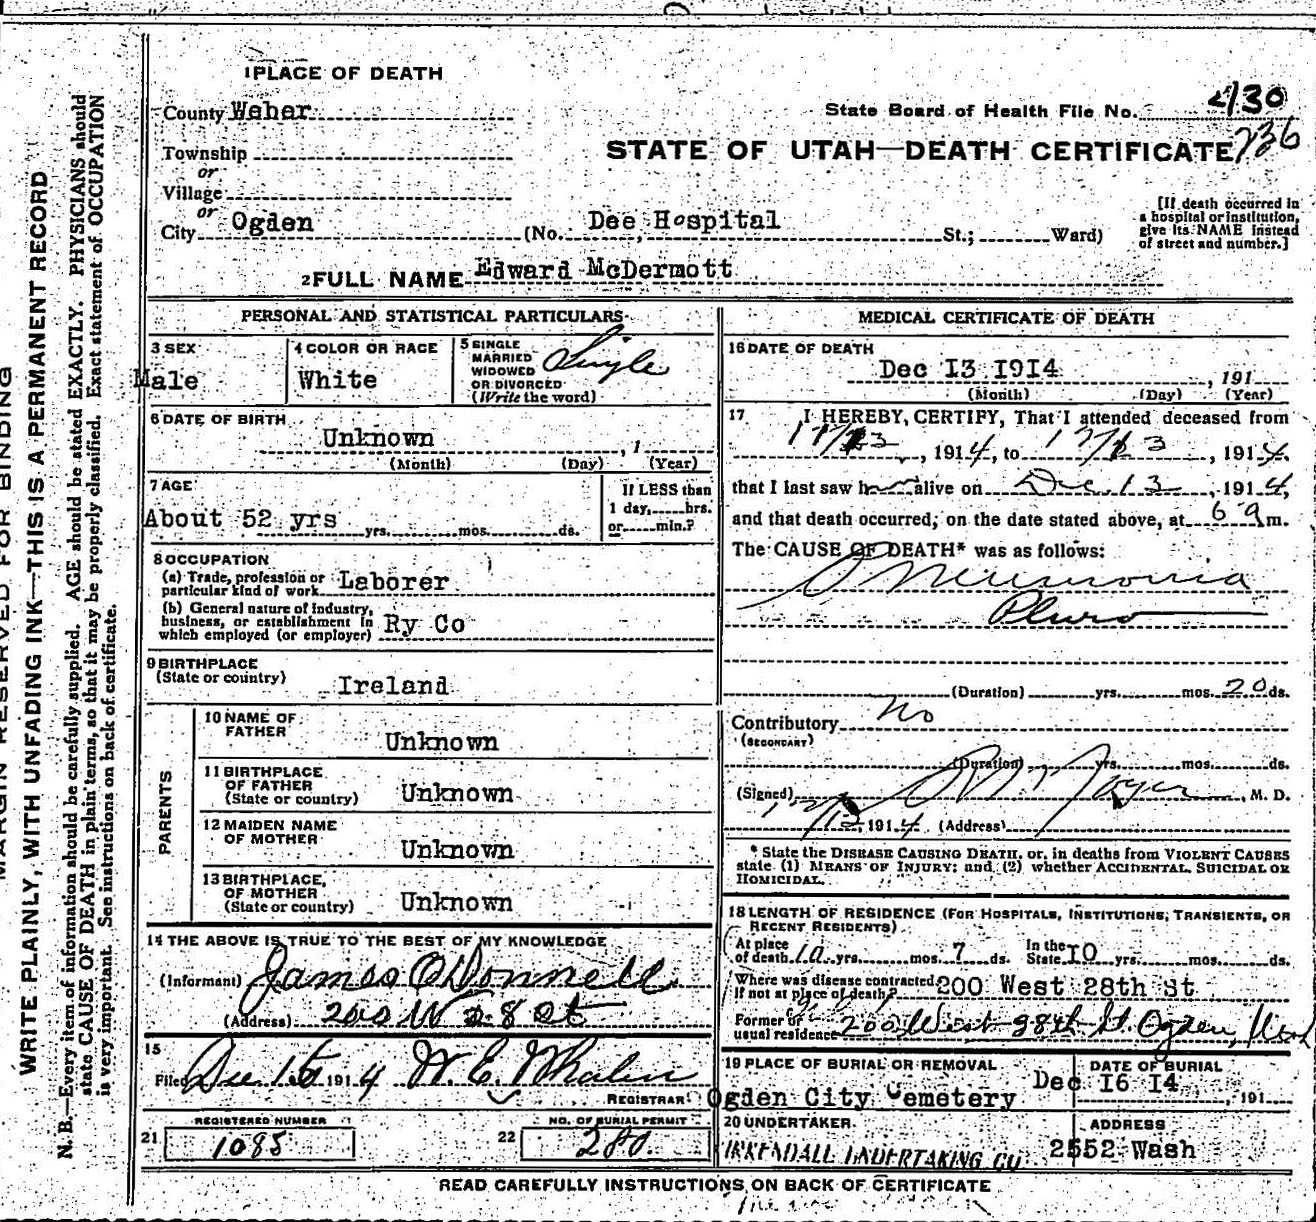 1 PLACE OF DEATH
County Weber
State Board of Health File No. 430
Township
STATE OF UTAH—DEATH CERTIFICATE 736
or
Village
or
City Ogden (No. Dee Hospital St.; Ward)
[If death occurred in
a hospital or institution,
give its NAME instead
of street and number.]
2 FULL NAME Edward McDermott
PERSONAL AND STATISTICAL PARTICULARS
3 SEX
Male
4 COLOR OR RACE
White
5 SINGLE
MARRIED
WIDOWED
OR DIVORCED
(Write the word)
Single
6 DATE OF BIRTH
Unknown , 1
(Month) (Day) (Year)
7 AGE
About 52 yrs yrs. mos. ds.
If LESS than
1 day, hrs.
or min.?
8 OCCUPATION
(a) Trade, profession or
particular kind of work Laborer
(b) General nature of industry,
business, or establishment in
which employed (or employer) Ry Co
9 BIRTHPLACE
(State or country) Ireland
PARENTS
10 NAME OF
FATHER
Unknown
11 BIRTHPLACE
OF FATHER
(State or country) Unknown
12 MAIDEN NAME
OF MOTHER
Unknown
13 BIRTHPLACE,
OF MOTHER
(State or country) Unknown
14 THE ABOVE IS TRUE TO THE BEST OF MY KNOWLEDGE
(Informant) James O'Donnell
(Address) 200 W 28 St
15
Filed Dec 15 1914 W. E. Whalen
REGISTRAR
REGISTERED NUMBER
21 1085
NO. OF BURIAL PERMIT
22 280.
MEDICAL CERTIFICATE OF DEATH
16 DATE OF DEATH
Dec I3 I9I4 , 191
(Month) (Day) (Year)
17 I HEREBY CERTIFY, That I attended deceased from
, 1914, to 12/13, 1914,
that I last saw him alive on Dec 13, 1914,
and that death occurred, on the date stated above, at 6 am.
The CAUSE OF DEATH* was as follows:
Pneumonia
Pluro
(Duration) yrs. mos. 20 ds.
Contributory no
(SECONDARY)
(Duration) yrs. mos. ds.
(Signed) , M. D.
12/13, 1914 (Address)
* State the DISEASE CAUSING DEATH, or, in deaths from VIOLENT CAUSES
state (1) MEANS OF INJURY; and (2) whether ACCIDENTAL, SUICIDAL OR
HOMICIDAL.
18 LENGTH OF RESIDENCE (FOR HOSPITALS, INSTITUTIONS, TRANSIENTS, OR
RECENT RESIDENTS)
At place
of death 10 yrs. mos. 7 ds. In the
State I0 yrs. mos. ds.
Where was disease contracted,
If not at place of death? 200 West 28th St
Former or
usual residence 200 West 28th St. Ogden, Utah
19 PLACE OF BURIAL OR REMOVAL
Ogden City Cemetery
DATE OF BURIAL
Dec I6 I4 , 191
20 UNDERTAKER
KIRKENDALL UNDERTAKING CO
ADDRESS
2552 Wash
READ CAREFULLY INSTRUCTIONS ON BACK OF CERTIFICATE
MARGIN RESERVED FOR BINDING
WRITE PLAINLY, WITH UNFADING INK—THIS IS A PERMANENT RECORD
N. B.—Every item of information should be carefully supplied. AGE should be stated EXACTLY. PHYSICIANS should
state CAUSE OF DEATH in plain terms, so that it may be properly classified. Exact statement of OCCUPATION
is very important. See instructions on back of certificate.